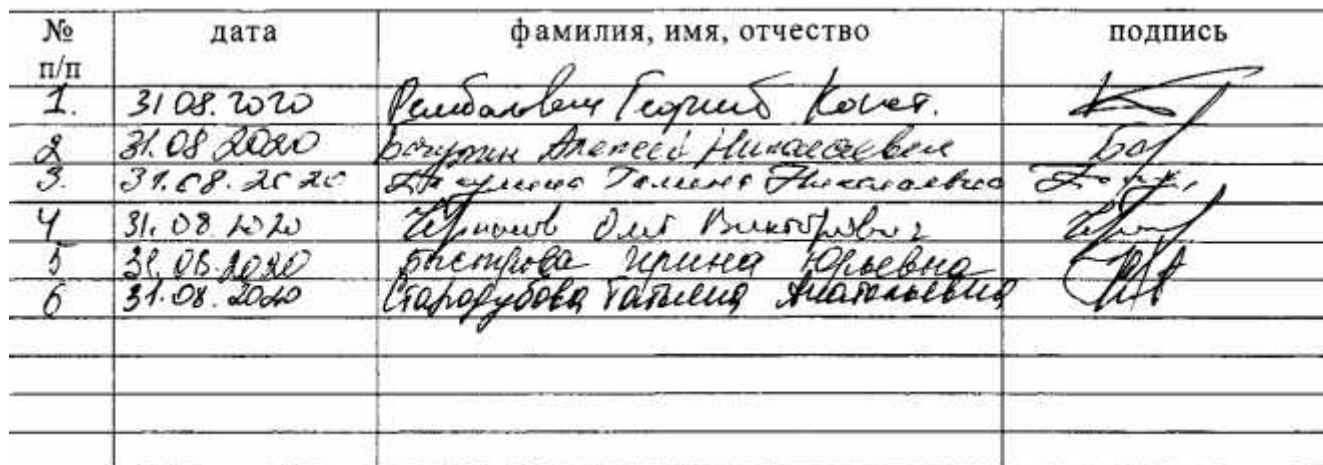 № п/п дата фамилия, имя, отчество подпись
1. 31 08. 2020 Рембалович Георгий Конст.
2 31.08 2020 Бачурин Алексей Николаевич
3. 31.08.2020 Николаевна
4 31.08 2020 Олег Викторович
5 31.08.2020 Ирина Юрьевна
6 31.08.2020 Стародубова Татьяна Анатольевна